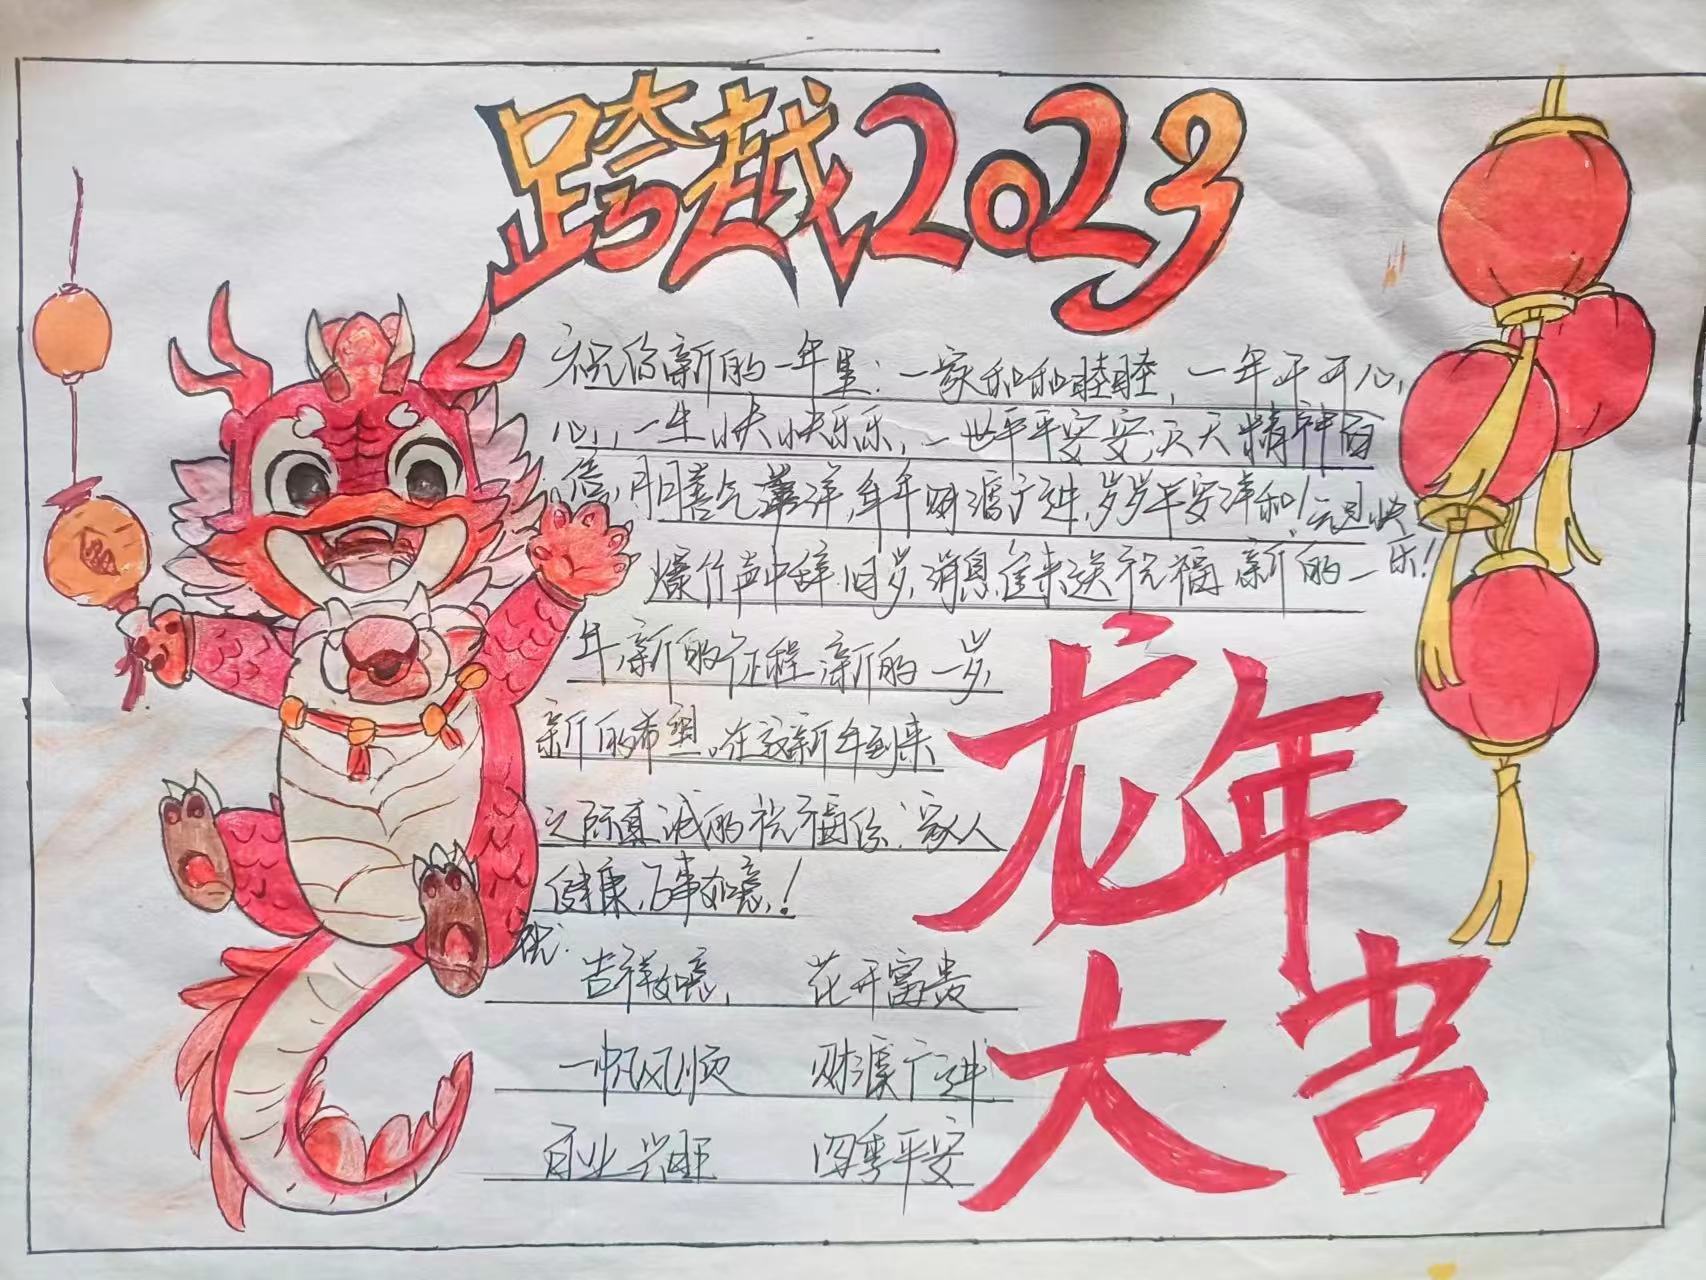 跨越2023
祝你新的一年里:一家和和睦睦,一年开开心
心,一生快快乐乐,一世平平安安,天天精神百
倍,月月喜气洋洋,年年财源广进,岁岁平安祥和!元旦快
乐!
爆竹声中辞旧岁,消息往来送祝福,新的一
年,新的征程,新的一岁,
新的希望。在这新年到来
之际真诚的祝福你:家人
健康,万事如意!
祝:
吉祥如意, 花开富贵
一帆风顺 财源广进
百业兴旺 四季平安
龙年
大吉